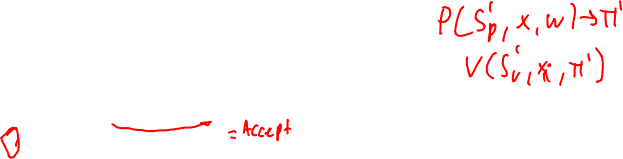 P(S'p, x, w) → π'
V(S'v, x, π')
= Accept